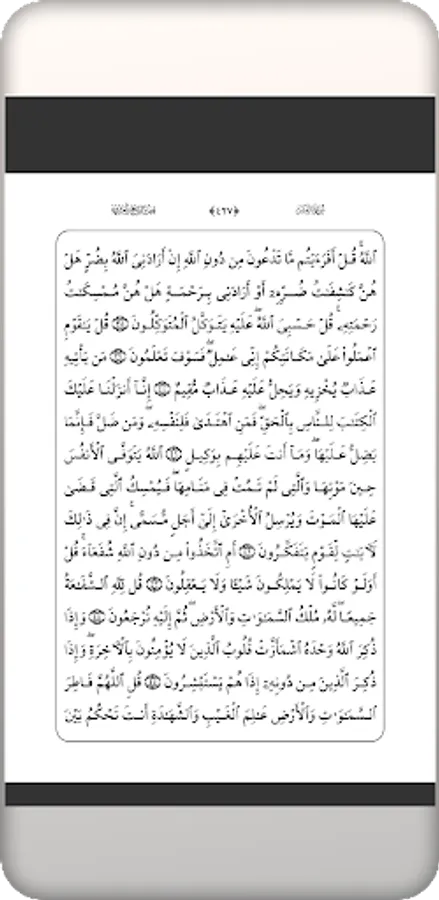 ﴿٤٦٧﴾
ٱللَّهُ ۚ قُلْ أَفَرَءَيْتُم مَّا تَدْعُونَ مِن دُونِ ٱللَّهِ إِنْ أَرَادَنِىَ ٱللَّهُ بِضُرٍّ هَلْ
هُنَّ كَـٰشِفَـٰتُ ضُرِّهِۦٓ أَوْ أَرَادَنِى بِرَحْمَةٍ هَلْ هُنَّ مُمْسِكَـٰتُ
رَحْمَتِهِۦ ۚ قُلْ حَسْبِىَ ٱللَّهُ ۖ عَلَيْهِ يَتَوَكَّلُ ٱلْمُتَوَكِّلُونَ ۝ قُلْ يَـٰقَوْمِ
ٱعْمَلُوا۟ عَلَىٰ مَكَانَتِكُمْ إِنِّى عَـٰمِلٌ ۖ فَسَوْفَ تَعْلَمُونَ ۝ مَن يَأْتِيهِ
عَذَابٌ يُخْزِيهِ وَيَحِلُّ عَلَيْهِ عَذَابٌ مُّقِيمٌ ۝ إِنَّآ أَنزَلْنَا عَلَيْكَ
ٱلْكِتَـٰبَ لِلنَّاسِ بِٱلْحَقِّ ۖ فَمَنِ ٱهْتَدَىٰ فَلِنَفْسِهِۦ ۖ وَمَن ضَلَّ فَإِنَّمَا
يَضِلُّ عَلَيْهَا ۖ وَمَآ أَنتَ عَلَيْهِم بِوَكِيلٍ ۝ ٱللَّهُ يَتَوَفَّى ٱلْأَنفُسَ
حِينَ مَوْتِهَا وَٱلَّتِى لَمْ تَمُتْ فِى مَنَامِهَا ۖ فَيُمْسِكُ ٱلَّتِى قَضَىٰ
عَلَيْهَا ٱلْمَوْتَ وَيُرْسِلُ ٱلْأُخْرَىٰٓ إِلَىٰٓ أَجَلٍ مُّسَمًّى ۚ إِنَّ فِى ذَٰلِكَ
لَـَٔايَـٰتٍ لِّقَوْمٍ يَتَفَكَّرُونَ ۝ أَمِ ٱتَّخَذُوا۟ مِن دُونِ ٱللَّهِ شُفَعَآءَ ۚ قُلْ
أَوَلَوْ كَانُوا۟ لَا يَمْلِكُونَ شَيْـًٔا وَلَا يَعْقِلُونَ ۝ قُل لِّلَّهِ ٱلشَّفَـٰعَةُ
جَمِيعًا ۖ لَّهُۥ مُلْكُ ٱلسَّمَـٰوَٰتِ وَٱلْأَرْضِ ۖ ثُمَّ إِلَيْهِ تُرْجَعُونَ ۝ وَإِذَا
ذُكِرَ ٱللَّهُ وَحْدَهُ ٱشْمَأَزَّتْ قُلُوبُ ٱلَّذِينَ لَا يُؤْمِنُونَ بِٱلْـَٔاخِرَةِ ۖ وَإِذَا
ذُكِرَ ٱلَّذِينَ مِن دُونِهِۦٓ إِذَا هُمْ يَسْتَبْشِرُونَ ۝ قُلِ ٱللَّهُمَّ فَاطِرَ
ٱلسَّمَـٰوَٰتِ وَٱلْأَرْضِ عَـٰلِمَ ٱلْغَيْبِ وَٱلشَّهَـٰدَةِ أَنتَ تَحْكُمُ بَيْنَ